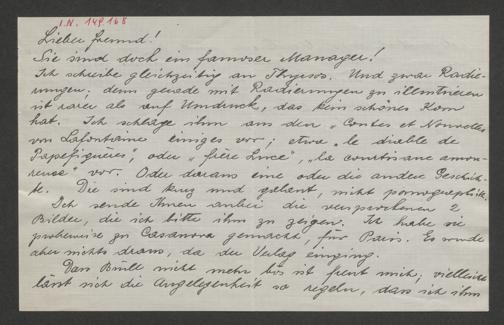 I.N. 149.168
Lieber Freund!
Sie sind doch ein famoser Manager!
Ich schreibe gleichzeitig an Thyrsos. Und zwar Radie-
rungen; denn gerade mit Radierungen zu illustrieren
ist rarer als auf Umdruck, das kein schönes Korn
hat. Ich schlage ihm aus den „Contes et Nouvelles
von Lafontaine einiges vor; etwa „le diable de
Papefiguères; oder „frère Luce", „la courtisane amou-
reuse" vor. Oder daraus eine oder die andere Geschich-
te. Die sind kurz und galant, nicht pornographisch.
Ich sende Ihnen anbei die versprochenen 2
Bilder, die ich bitte ihm zu zeigen. Ich habe sie
probeweise zu Casanova gemacht, für Paris. Es wurde
aber nichts draus, da der Verlag einging.
Dass Brüll nicht mehr bös ist freut mich; vielleicht
lässt sich die Angelegenheit so regeln, dass ich ihm